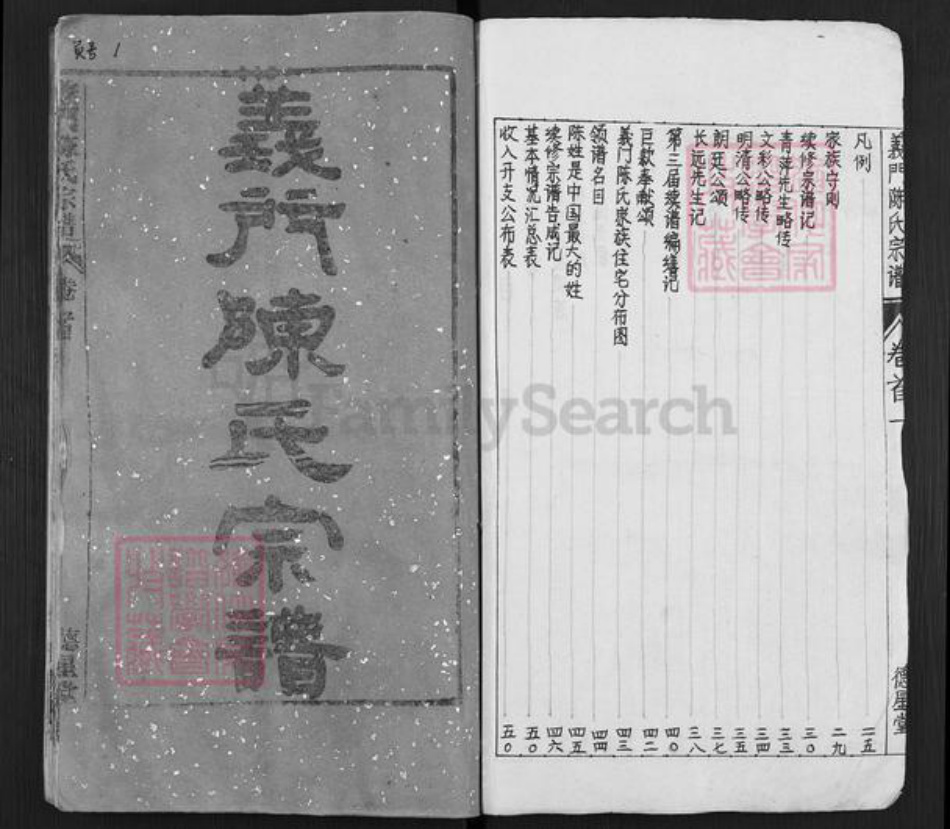 义門陳氏宗谱
卷首一
德星堂
凡例 二五
家族守则 二九
续修宗谱记 三0
青萍先生略传 三三
文彩公略传 三四
明清公略传 三五
朗廷公颂 三七
长远先生记 三八
第三届续谱编缮记 四0
巨款奉献颂 四二
義门陈氏家族住宅分布图 四三
领谱名目 四四
陈姓是中国最大的姓 四五
续修宗谱告成记 四六
基本情况汇总表 五0
收入开支公布表 五0
義門陳氏宗譜
卷首
德星堂
1
FamilySearch